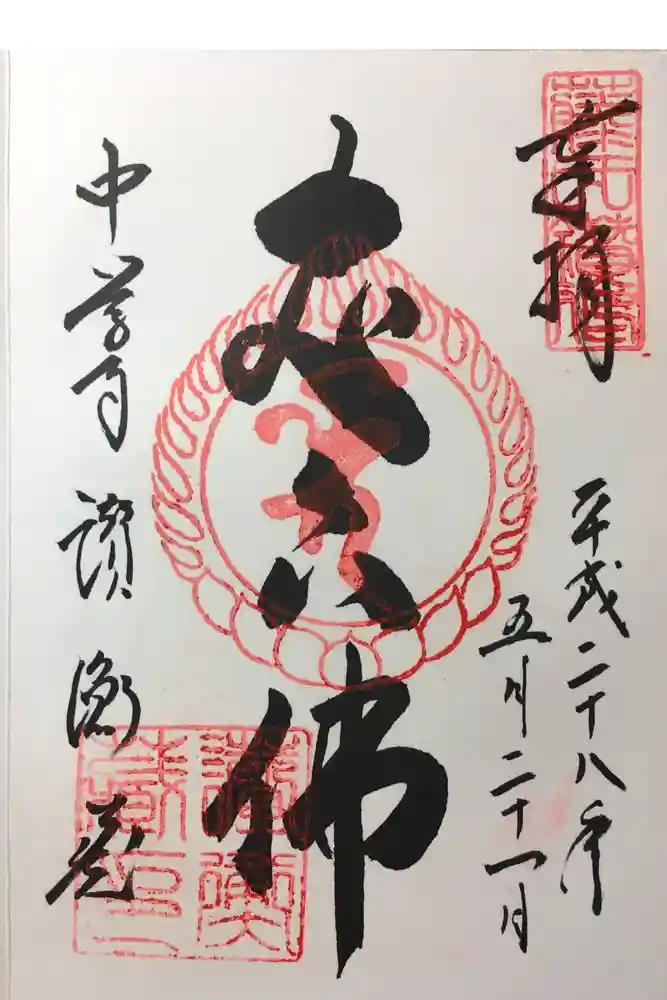 奉拝
平成二十八年
五月二十一日
丈六佛
中尊寺 讃衡蔵
讃衡蔵印